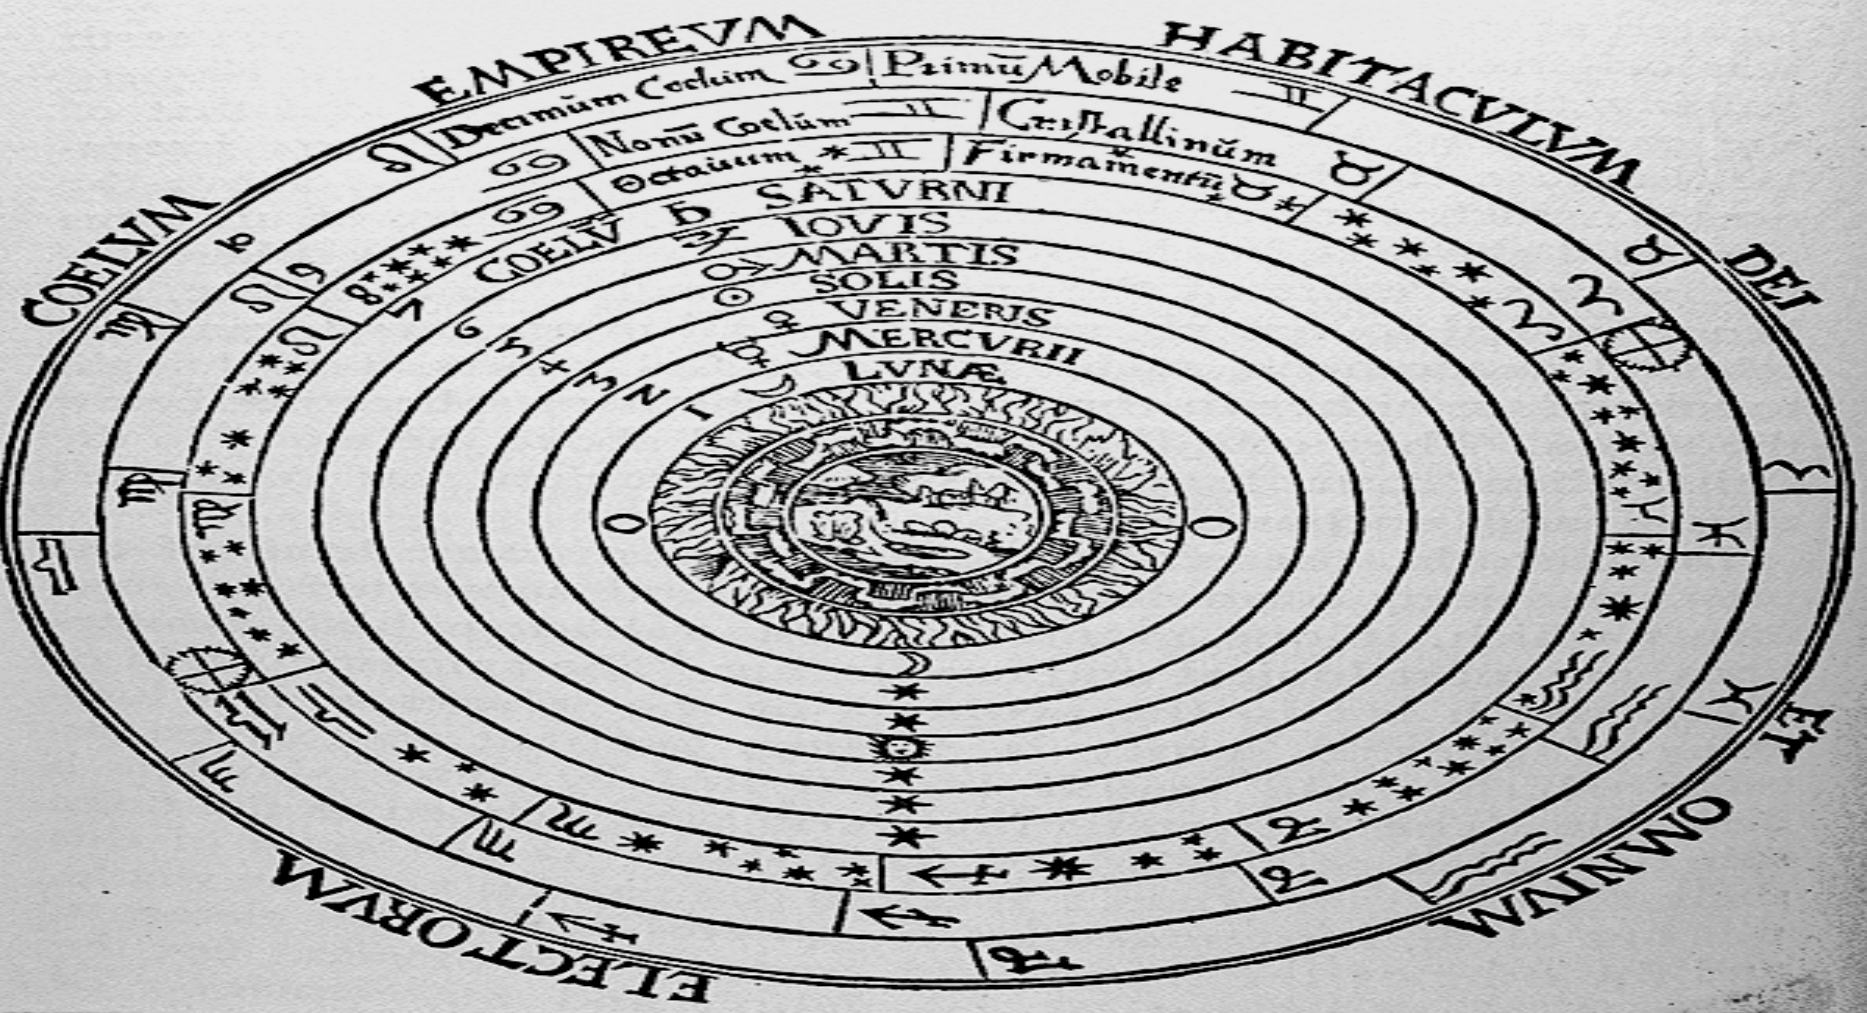 COELVM EMPIREVM HABITACVLVM DEI ET OMNIVM ELECTORVM
10 Decimūm Coelum Primū Mobile
9 Nonū Coelūm Cristallinūm
8 Octauum Firmamentū
7 COELV̄ SATVRNI
6 IOVIS
5 MARTIS
4 SOLIS
3 VENERIS
2 MERCVRII
1 LVNÆ